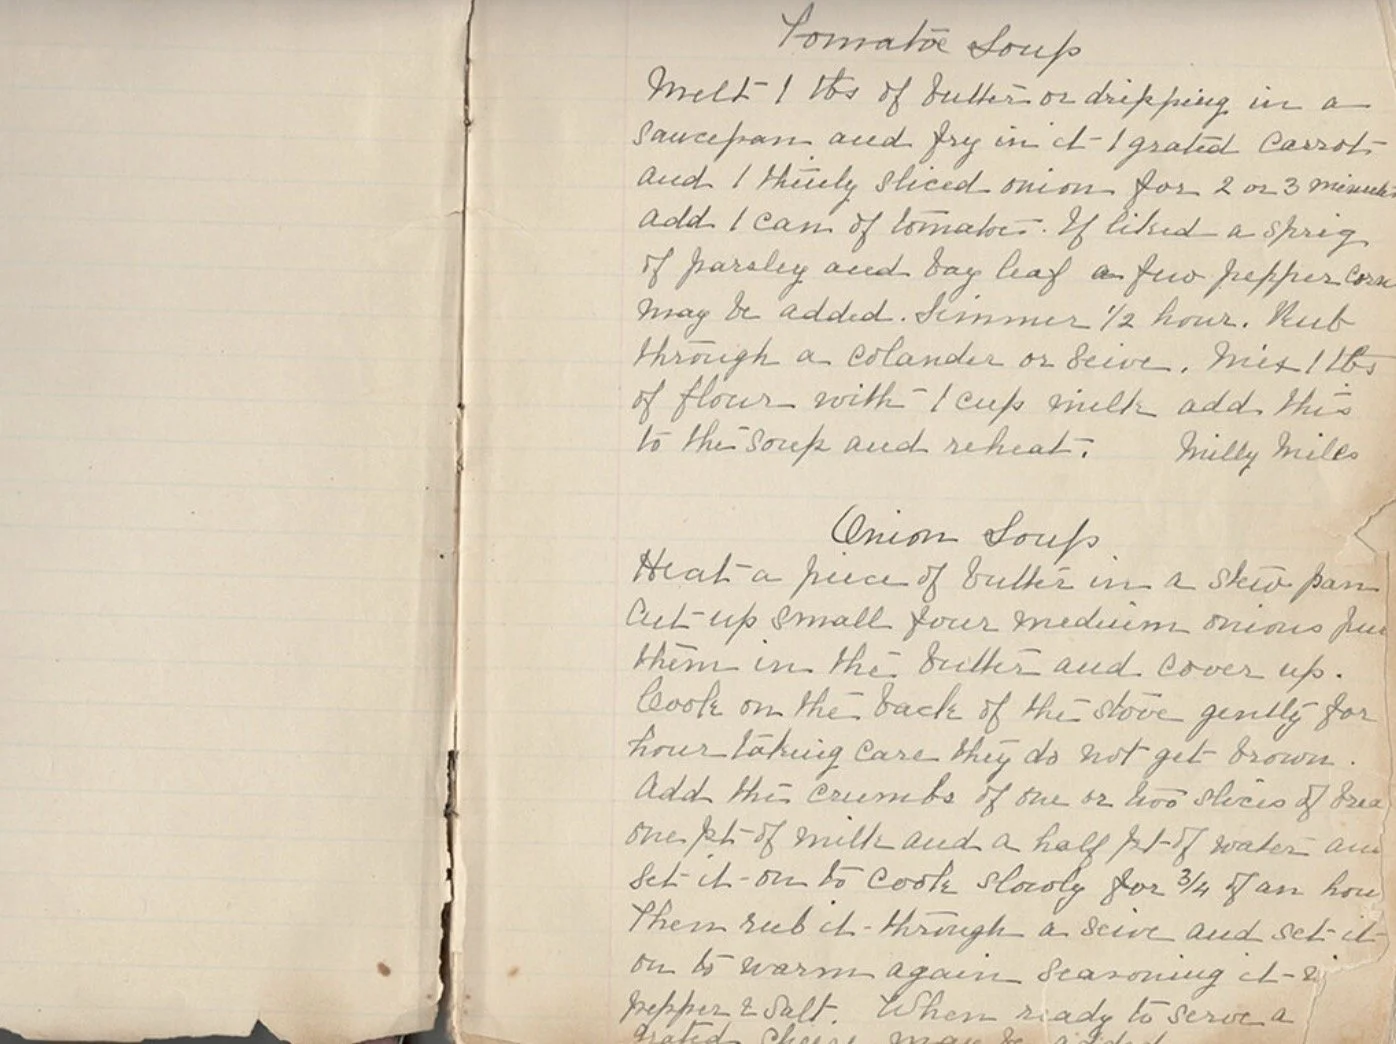 Tomatoe Soup
Melt 1 tbs of butter or dripping in a
saucepan and fry in it 1 grated carrot
and 1 thinly sliced onion for 2 or 3 minutes
add 1 can of tomatoes. If liked a sprig
of parsley and bay leaf a few pepper corns
may be added. Simmer 1/2 hour. Rub
through a colander or seive. Mix 1 tbs
of flour with 1 cup milk add this
to the soup and reheat. Milly Miles
Onion Soup
Heat a piece of butter in a stew pan
Cut up small four medium onions pu
them in the butter and cover up.
Cook on the back of the stove gently for
hour taking care they do not get brown.
Add the crumbs of one or two slices of brea
one pt of milk and a half pt of water an
set it on to cook slowly for 3/4 of an hou
Then rub it through a seive and set it
on to warm again seasoning it
pepper & salt. When ready to serve a
grated cheese may be added